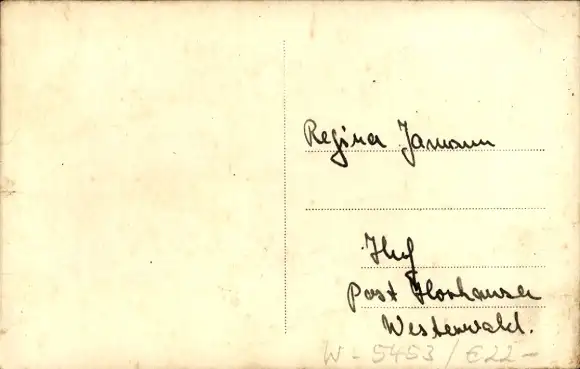 Regina Jamann
Huf
Post Horhausen
Westerwald.
W - 5453 / €22 -